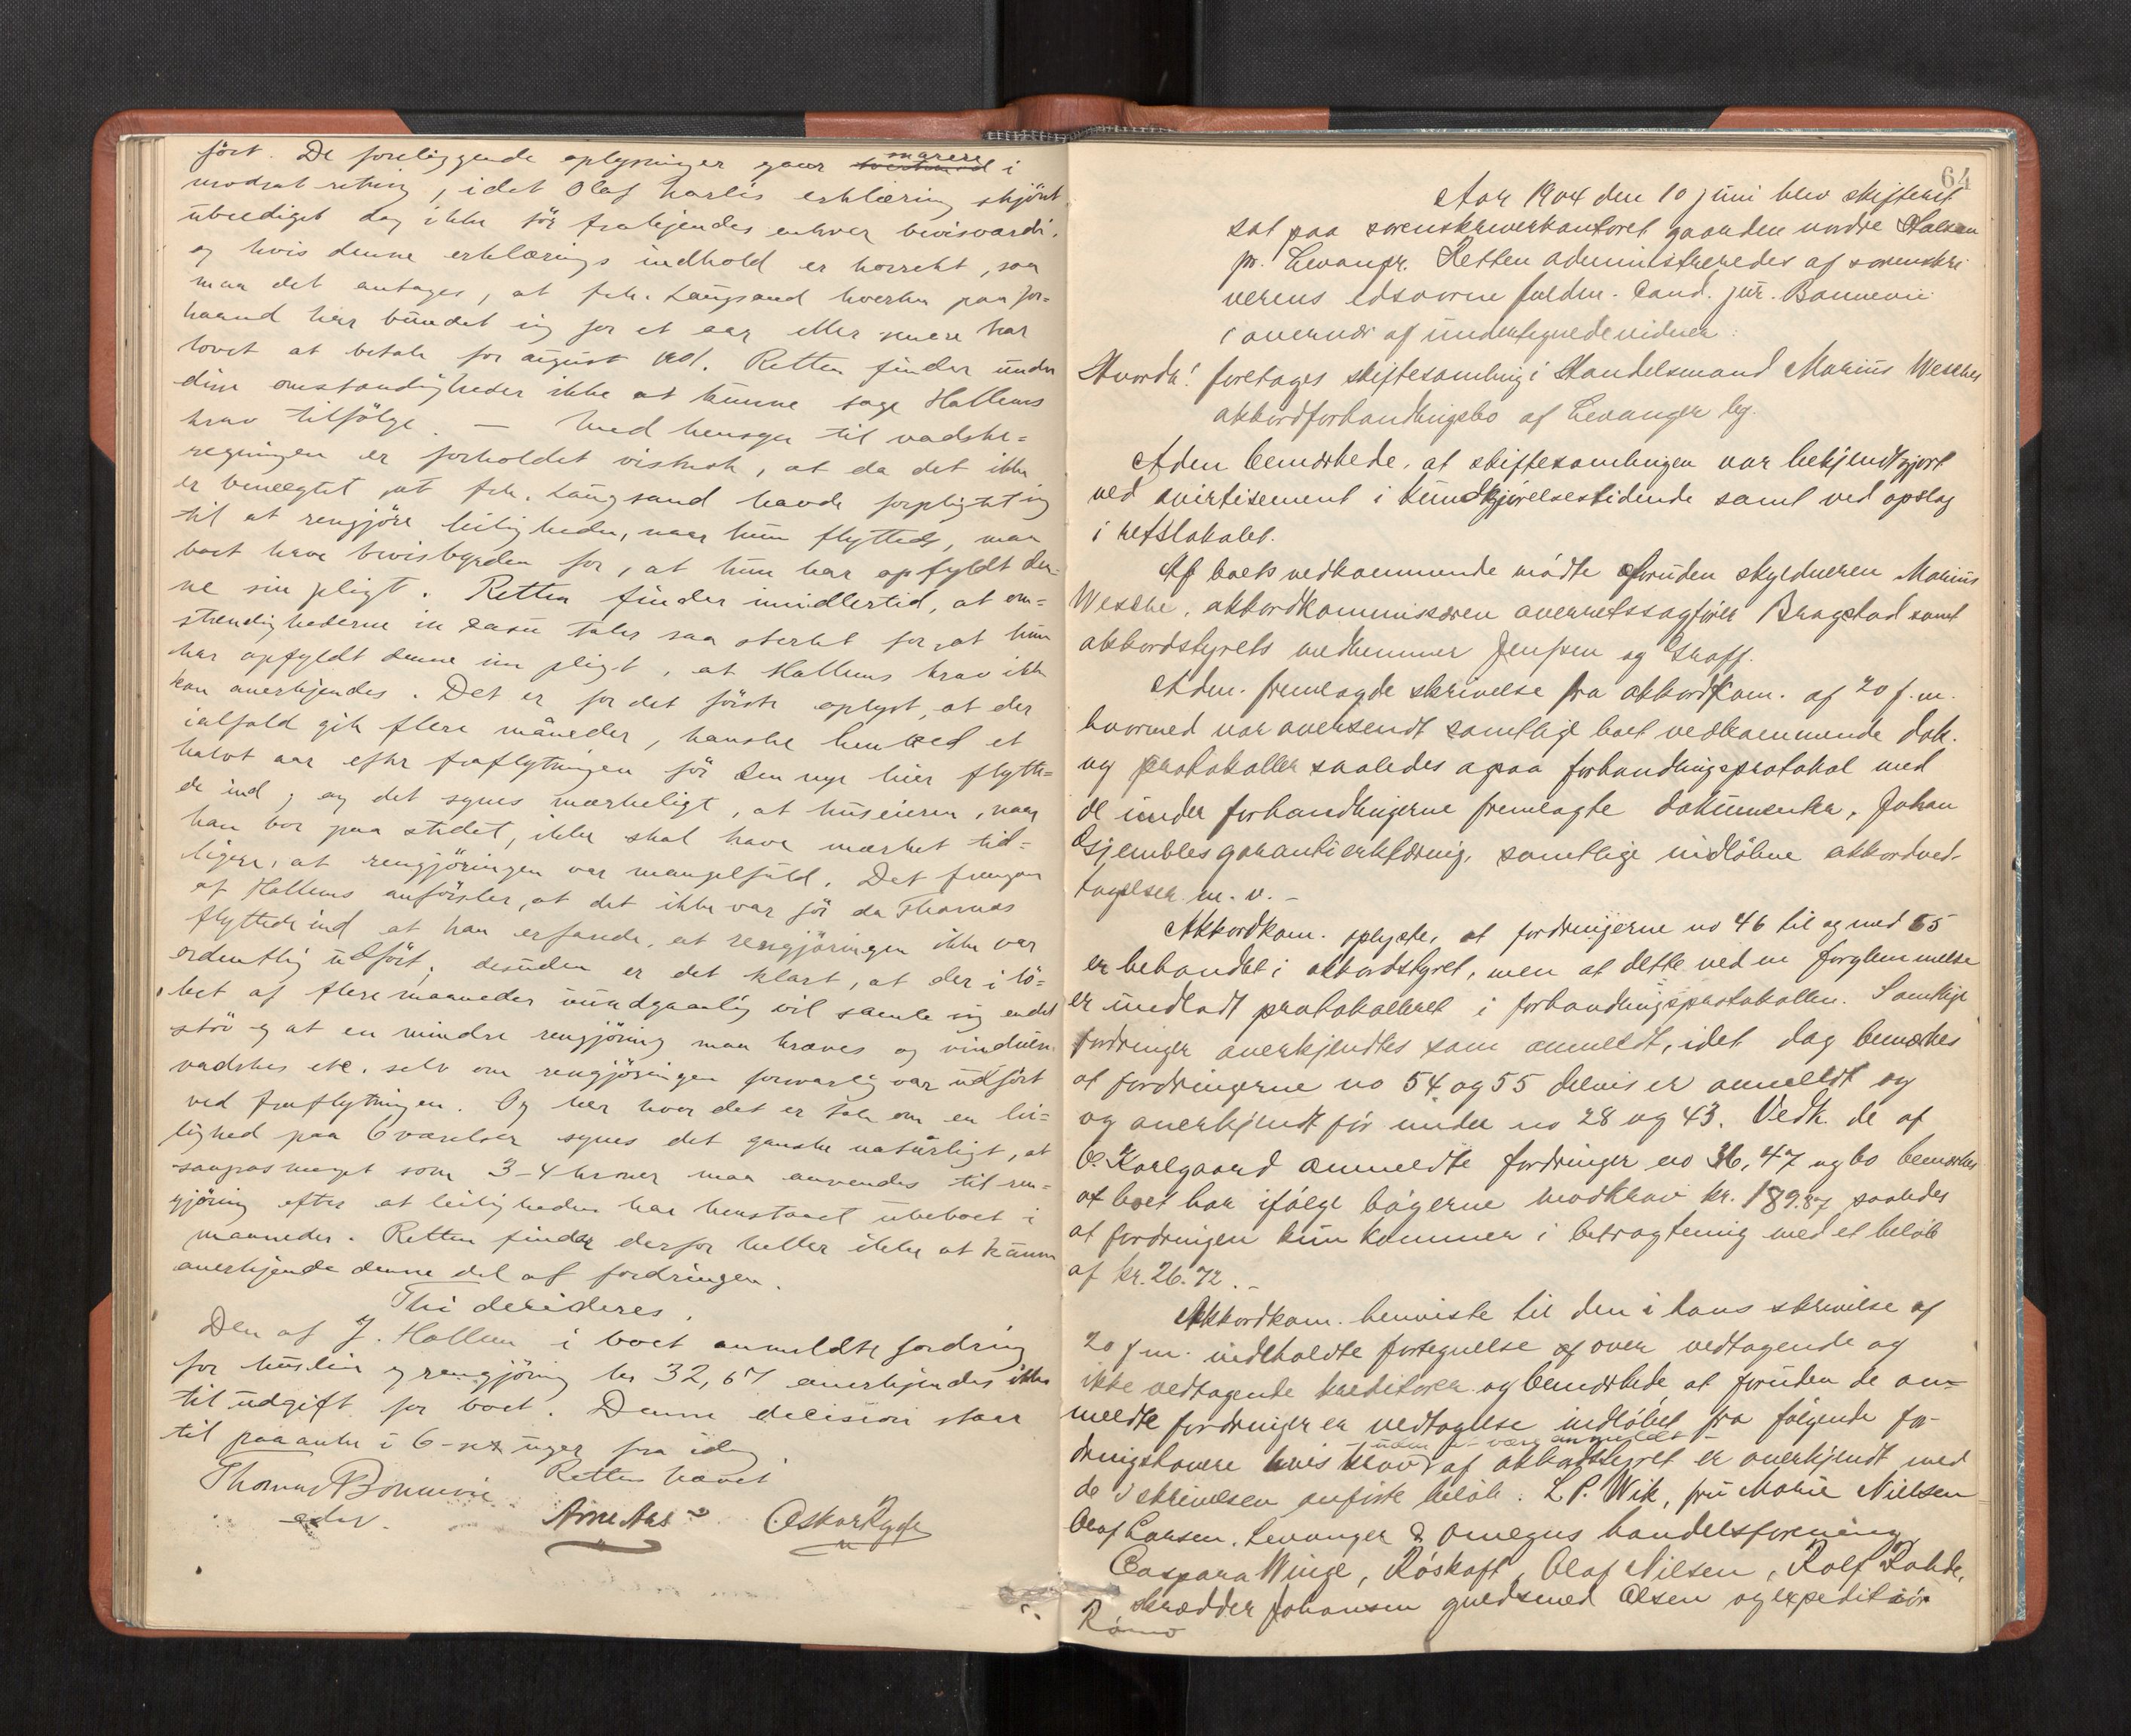 ført. De foreliggende oplysninger gaar snarere i
modsat retning, idet Olaf Karlis erklæring skjønt
ubeediget dog ikke bør frakjendes enhver bevisværdi,
og hvis denne erklærings indhold er korrekt, saa
maa det antages, at frk. Langsand hverken paa for=
haand har bundet sig for et aar eller senere har
lovet at betale for august 1901. Retten finder under
disse omstændigheder ikke at kunne tage Hallems
krav tilfølge. — Med hensyn til vadske=
regningen er forholdet vistnok, at da det ikke
er benægtet at frk. Langsand havde forpligtet sig
til at rengjøre leiligheden, naar hun flyttede, maa
boet have bevisbyrden for, at hun har opfyldt den=
ne sin pligt. Retten finder imidlertid, at om=
stændighederne in casu taler saa sterkt for, at hun
har opfyldt denne sin pligt, at Hallems krav ikke
kan anerkjendes. Det er for det første oplyst, at der
ialfald gik flere måneder, kanske henved et
halvt aar efter fraflytningen før den nye leier flytte=
de ind, og det synes mærkeligt, at huseieren, naar
han bor paa stedet, ikke skal have mærket tid=
ligere, at rengjøringen var mangelfuld. Det fremgaar
af Hallems anførsler, at det ikke var før da Thomas
flyttede ind at han erfarede, at rengjøringen ikke var
ordentlig udført; desuden er det klart, at der i lø=
bet af flere maaneder uundgaaelig vil samle sig endel
støv og at en mindre rengjøring maa kræves og vinduer
vadskes etc. selv om rengjøringen forsvarlig var udført
ved fraflytningen. Og her hvor det er tale om en lei=
lighed paa 6 værelser synes det ganske naturligt, at
saapas meget som 3-4 kroner maa anvendes til ren=
gjøring efter at leiligheden har henstaaet ubeboet i
maaneder. Retten finder derfor heller ikke at kunne
anerkjende denne del af fordringen.
Thi decideres:
Den af J. Hallem i boet anmeldte fordring
for husleie og rengjøring kr 32,67 anerkjendes ikke
til udgift for boet. Denne decision staar
til paaanke i 6 - sex uger fra idag
Retten hævet
Thomas Bonnevie
edsv.
Arne Aas
Oskar Rygh
64
Aar 1904 den 10 juni blev skifteret
sat paa sorenskriverkontoret gaarden nordre Halsan
pr. Levanger. Retten administreredes af sorenskri
verens edsvorne fuldm. Cand. jur. Bonnevie
i overvær af undertegnede vidner:
Hvorda! foretoges skiftesamling i Handelsmand Marius Wesches
akkordforhandlingsbo af Levanger by.
Adm bemærkede, at skiftesamlingen var bekjendtgjort
ved avertisement i Kundgjørelsestidende samt ved opslag
i retslokalet.
Af boets vedkommende mødte foruden skyldneren Marius
Wesche, akkordkommissæren overretssagfører Bragstad samt
akkordstyrets medlemmer Jenssen og Graff.
Adm. fremlagde skrivelse fra akkordkom. af 20 f.m.
hvormed var oversendt samtlige boet vedkommende dok.
og protokoller saaledes ogsaa forhandlingsprotokol med
de under forhandlingerne fremlagte dokumenter, Johan
Gjembles garantierklæring, samtlige indløbne akkordved-
tagelser m. v. –
Akkordkom. oplyste, at fordringerne no 46 til og med 65
er behandlet i akkordstyret, men at dette ved en forglemmelse
er undladt protokolleret i forhandlingsprotokollen. Samtlige
fordringer anerkjendtes som anmeldt, idet dog bemærkes
at fordringerne no 54 og 55 delvis er anmeldt og
og anerkjendt før under no 28 og 43. Vedk. de af
O. Korlgaard anmeldte fordringer no 36, 47 og 60 bemærkes
at boet har ifølge bøgerne modkrav kr. 189.87 saaledes
at fordringen kun kommer i betragtning med et beløb
af kr. 26.72. –
Akkordkom. henviste til den i hans skrivelse af
20 f.m. indeholdte fortegnelse over vedtagende og
ikke vedtagende kreditorer og bemærkede at foruden de an=
meldte fordringer er vedtagelse indløbet fra følgende for-
dringshavere hvis krav uden at være anmeldt af akkordstyret er anerkjendt med
de i skrivelsen anførte beløb: L P. Wik, fru Marie Nielsen
Olaf Larsen, Levanger & omegns handelsforening
Caspara Winge, Røskaft, Olaf Nilsen, Rolf Rohde,
skrædder Johansen guldsmed Olsen og expeditør
Rømo